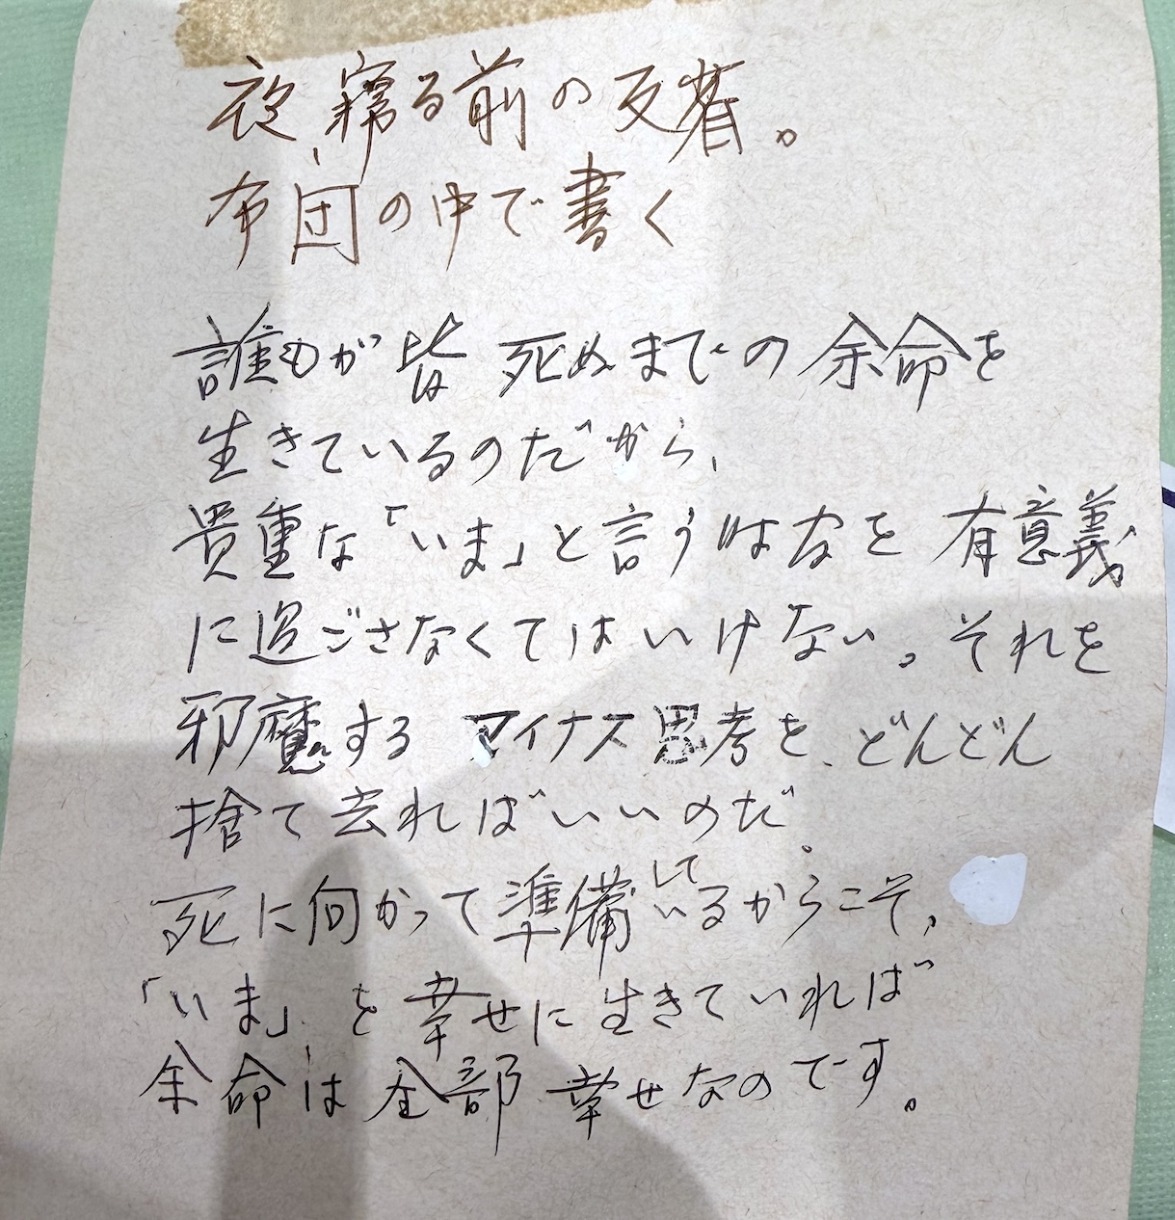 夜寝る前の反省。
布団の中で書く
誰もが皆 死ぬまでの 余命を
生きているのだから、
貴重な「いま」と言う時間を 有意義
に過ごさなくてはいけない。それを
邪魔する マイナス思考を、どんどん
捨て去ればいいのだ。
死に向かって準備しているからこそ、
「いま」を幸せに生きていれば
余命は全部 幸せなのです。